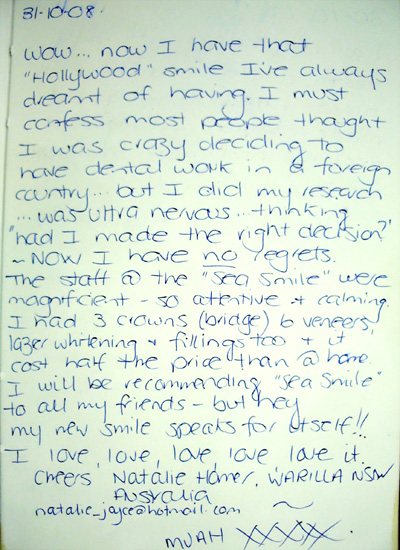 31-10-08.
Wow... now I have that
"Hollywood" smile I've always
dreamt of having. I must
confess most people thought
I was crazy deciding to
have dental work in a foreign
country... but I did my research
... was ultra nervous... thinking
"had I made the right decision?"
~ NOW I have no regrets.
The staff @ the "Sea Smile" were
magnificient - so attentive + calming.
I had 3 crowns (bridge) 6 veneers,
lazer whitening + fillings too + it
cost half the price than @ home.
I will be recommending "Sea Smile"
to all my friends - but hey
my new smile speaks for itself!!
I love, love, love, love love it.
Cheers Natalie Homer, WARILLA NSW
Australia
natalie_joyce@hotmail.com
MUAH XXXX.